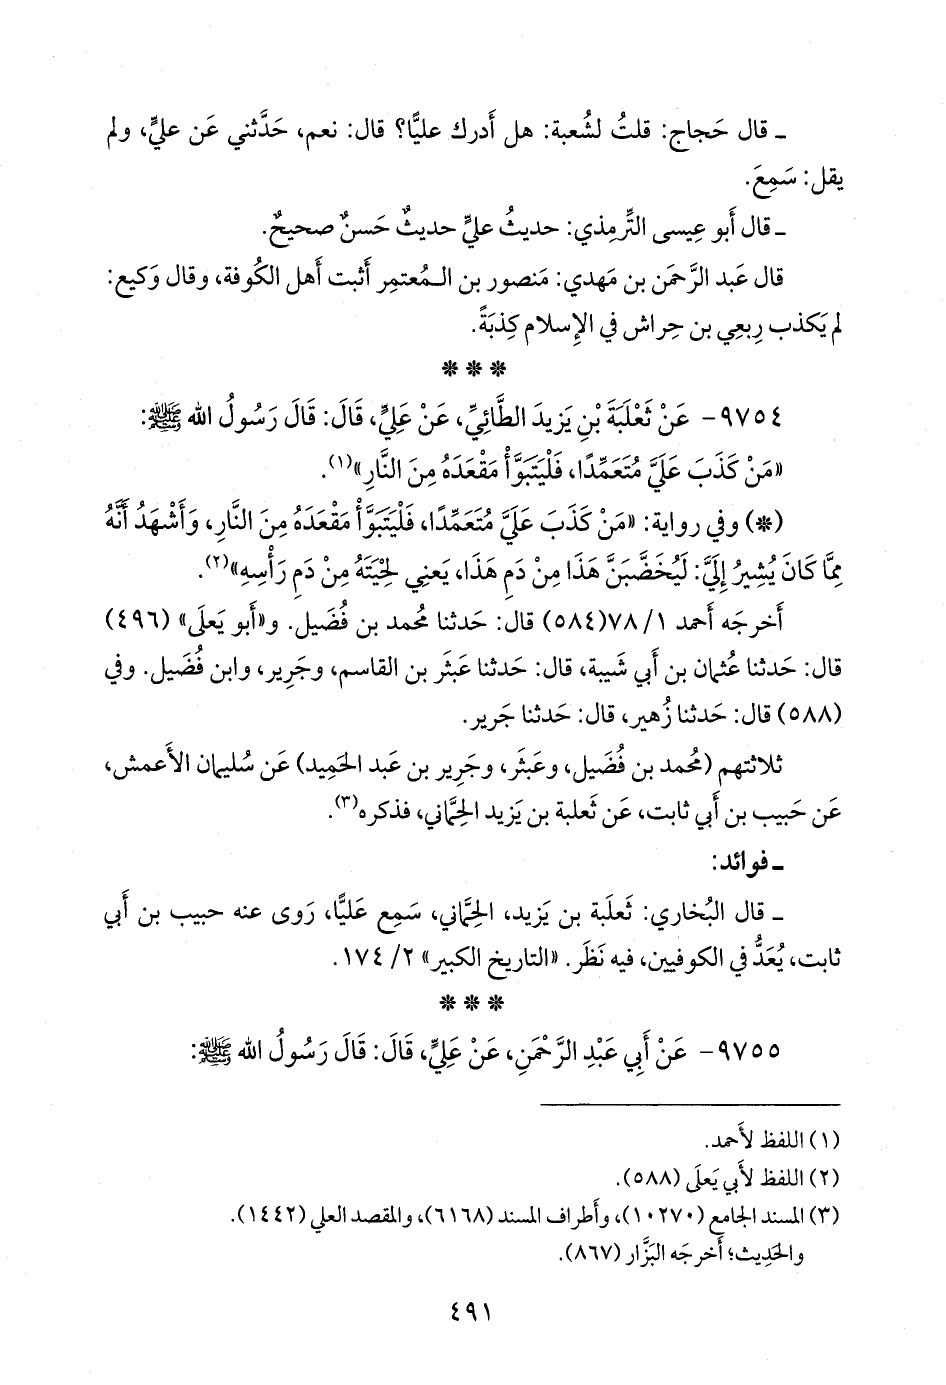 ـ قال حَجاج: قلتُ لشُعبة: هل أَدرك عليًّا؟ قال: نعم، حَدَّثني عَن عليٍّ، ولم
يقل: سَمِعَ.
ـ قال أَبو عِيسى التِّرمِذي: حديثُ عليٍّ حديثٌ حَسنٌ صحيحٌ.
قال عَبد الرَّحمَن بن مَهدي: مَنصور بن الـمُعتمِر أَثبت أَهل الكُوفة، وقال وَكيع:
لم يَكذب رِبعِي بن حِراش في الإِسلام كِذبَةً.
* * *
٩٧٥٤- عَنْ ثَعْلَبَةَ بْنِ يَزِيدَ الطَّائِيِّ، عَنْ عَلِيٍّ، قَالَ: قَالَ رَسُولُ الله ﷺ:
«مَنْ كَذَبَ عَلَيَّ مُتَعَمِّدًا، فَلْيَتَبَوَّأْ مَقْعَدَهُ مِنَ النَّارِ»(١).
(*) وفي رواية: «مَنْ كَذَبَ عَلَيَّ مُتَعَمِّدًا، فَلْيَتَبَوَّأْ مَقْعَدَهُ مِنَ النَّارِ، وَأَشْهَدُ أَنَّهُ
مِمَّا كَانَ يُشِيرُ إِلَيَّ: لَيُخَضَّبَنَّ هَذَا مِنْ دَمِ هَذَا، يَعنِي لِحْيَتَهُ مِنْ دَمِ رَأْسِهِ»(٢).
أَخرجَه أَحمد ١/ ٧٨(٥٨٤) قال: حَدثنا مُحمد بن فُضَيل. و«أَبو يَعلَى» (٤٩٦)
قال: حَدثنا عُثمان بن أَبي شَيبة، قال: حَدثنا عَبثَر بن القاسم، وجَرِير، وابن فُضَيل. وفي
(٥٨٨) قال: حَدثنا زُهير، قال: حَدثنا جَرير.
ثلاثتهم (مُحمد بن فُضَيل، وعَبثَر، وجَرِير بن عَبد الحَمِيد) عَن سُليمان الأَعمش،
عَن حَبيب بن أَبي ثابت، عَن ثَعلبة بن يَزيد الحِمَّاني، فذكره(٣).
ـ فوائد:
ـ قال البُخاري: ثَعلَبة بن يَزيد، الحِمَّاني، سَمِع عَليًّا، رَوى عنه حبيب بن أَبي
ثابت، يُعَدُّ في الكوفيين، فيه نَظَر. «التاريخ الكبير» ٢/ ١٧٤.
* * *
٩٧٥٥- عَنْ أَبِي عَبْدِ الرَّحْمَنِ، عَنْ عَلِيٍّ، قَالَ: قَالَ رَسُولُ الله ﷺ:
(١) اللفظ لأَحمد.
(٢) اللفظ لأَبي يَعلَى (٥٨٨).
(٣) المسند الجامع (١٠٢٧٠)، وأَطراف المسند (٦١٦٨)، والمقصد العلي (١٤٤٢).
والحَدِيث؛ أَخرجَه البَزَّار (٨٦٧).
٤٩١